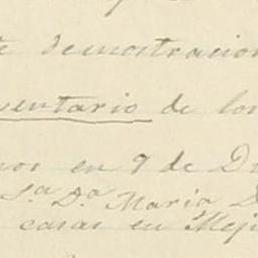 e demostracion
ventario de los
nos en 9 de D
S.ª D.ª Maria D
casas en Mej